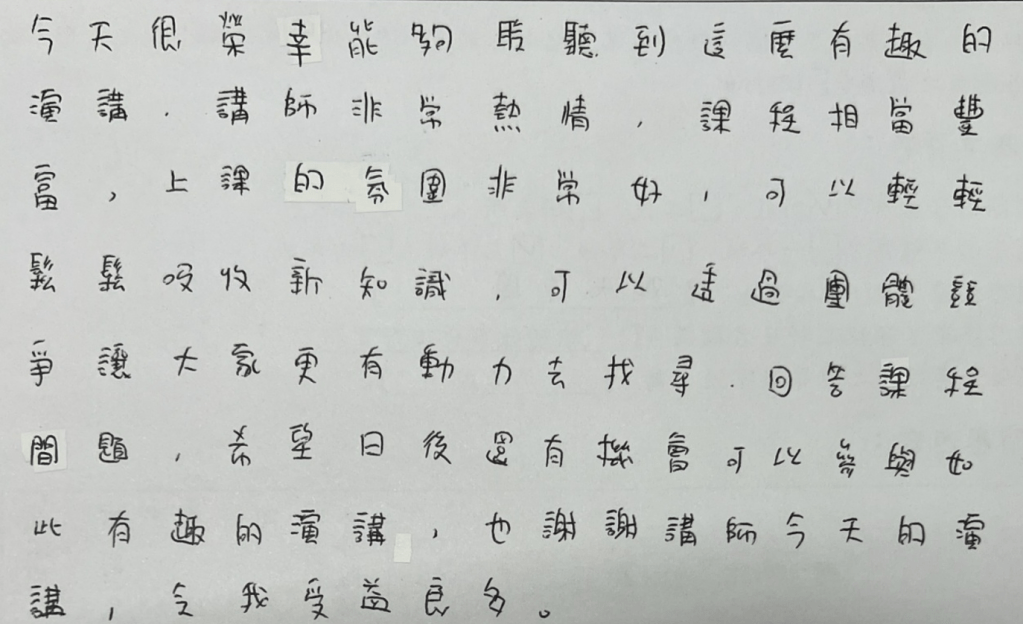 今天很榮幸能夠聆聽到這麼有趣的
演講，講師非常熱情，課程相當豐
富，上課的氛圍非常好，可以輕輕
鬆鬆吸收新知識，可以透過團體競
爭讓大家更有動力去找尋、回答課程
問題，希望日後還有機會可以參與如
此有趣的演講，也謝謝講師今天的演
講，令我受益良多。